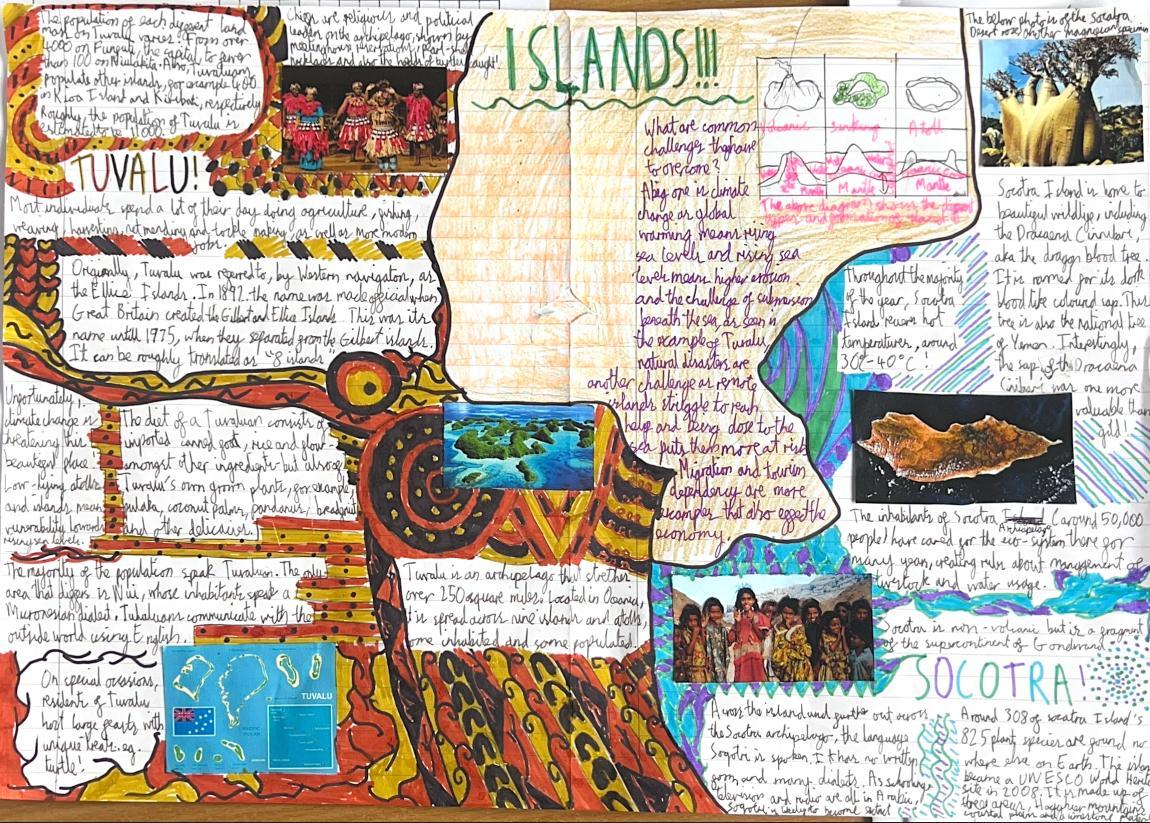 The population of each different land
mass on Tuvalu varies! From over
4000 on Funguti, the capital, to fewer
than 100 on Niulakita. Also, Tuvaluans
populate other islands, for example 400
on Kioa Island and Kiribati, respectively.
Roughly, the population of Tuvalu is
estimated to be 11,000.
Chiefs are religious and political
leaders on the archipelago, shown by
meetinghouse reservations, pearl-shell
necklaces and also the heads of turtles caught!
TUVALU!
Most individuals spend a lot of their day doing agriculture, fishing,
weaving, harvesting, net mending and tackle making as well as more modern
jobs.
Originally, Tuvalu was referred to, by Western navigators, as
the Ellice Islands. In 1892 the name was made official when
Great Britain created the Gilbert and Ellice Islands. This was its
name until 1975, when they separated from the Gilbert islands.
It can be roughly translated as "8 islands"
Unfortunately,
climate change is
threatening this
beautiful place.
Low-lying atolls
and islands means
vulnerability towards
rising sea levels.
The diet of a Tuvaluan consists of
imported canned goods, rice and flour -
amongst other ingredients - but also of
Tuvalu's own grown plants, for example,
pulaka, coconut palms, pandanus, breadfruit
and other delicacies.
The majority of the population speak Tuvaluan. The only
area that differs is Nui, whose inhabitants speak a
Micronesian dialect. Tuvaluans communicate with the
outside world using English.
Tuvalu is an archipelago that stretches
over 250 square miles. Located in Oceania,
it is spread across nine islands and atolls,
some inhabited and some populated.
On special occasions,
residents of Tuvalu
host large feasts with
unique treats e.g.
turtle!
TUVALU
ISLANDS!!!
What are common
challenges they have
to overcome?
A big one is climate
change as global
warming means rising
sea levels and rising sea
levels means higher erosion
and the challenge of submersion
beneath the sea, as seen in
the example of Tuvalu,
natural disasters are
another challenge as remote
islands struggle to reach
help and being close to the
sea puts them more at risk
Migration and tourism
dependency are more
examples that also effect the
economy.
Volcanic
Sinking
Atoll
Mantle
Mantle
Mantle
The above diagram shows the different
types and formation of islands
The below photo is of the Socotra
Desert rose, another specimen
Socotra Island is home to
beautiful wildlife, including
the Dracaena Cinnibari,
aka the dragon blood tree.
It is named for its dark
blood like coloured sap. This
tree is also the national tree
of Yemen. Interestingly,
the sap of the Dracaena
Cinibari was one more
valuable than
gold!
Throughout the majority
of the year, Socotra
Island receives hot
temperatures, around
30°C-40°C!
The inhabitants of Socotra Archipelago (around 50,000
people) have cared for the eco-system there for
many years, creating rules about management of
livestock and water usage.
Socotra is non-volcanic but is a fragment
of the supercontinent of Gondwana
SOCOTRA!
Across the island and further out across
the Socotra archipelago, the language
Soqotri is spoken. It has no written
form and many dialects. As schooling,
television and radio are all in Arabic,
Soqotri is likely to become extinct
Around 308 of socotra Island's
825 plant species are found no
where else on Earth. The island
became a UNESCO World Heritage
site in 2008. It is made up of
three areas, Haghier mountains,
coastal plain and a limestone plateau